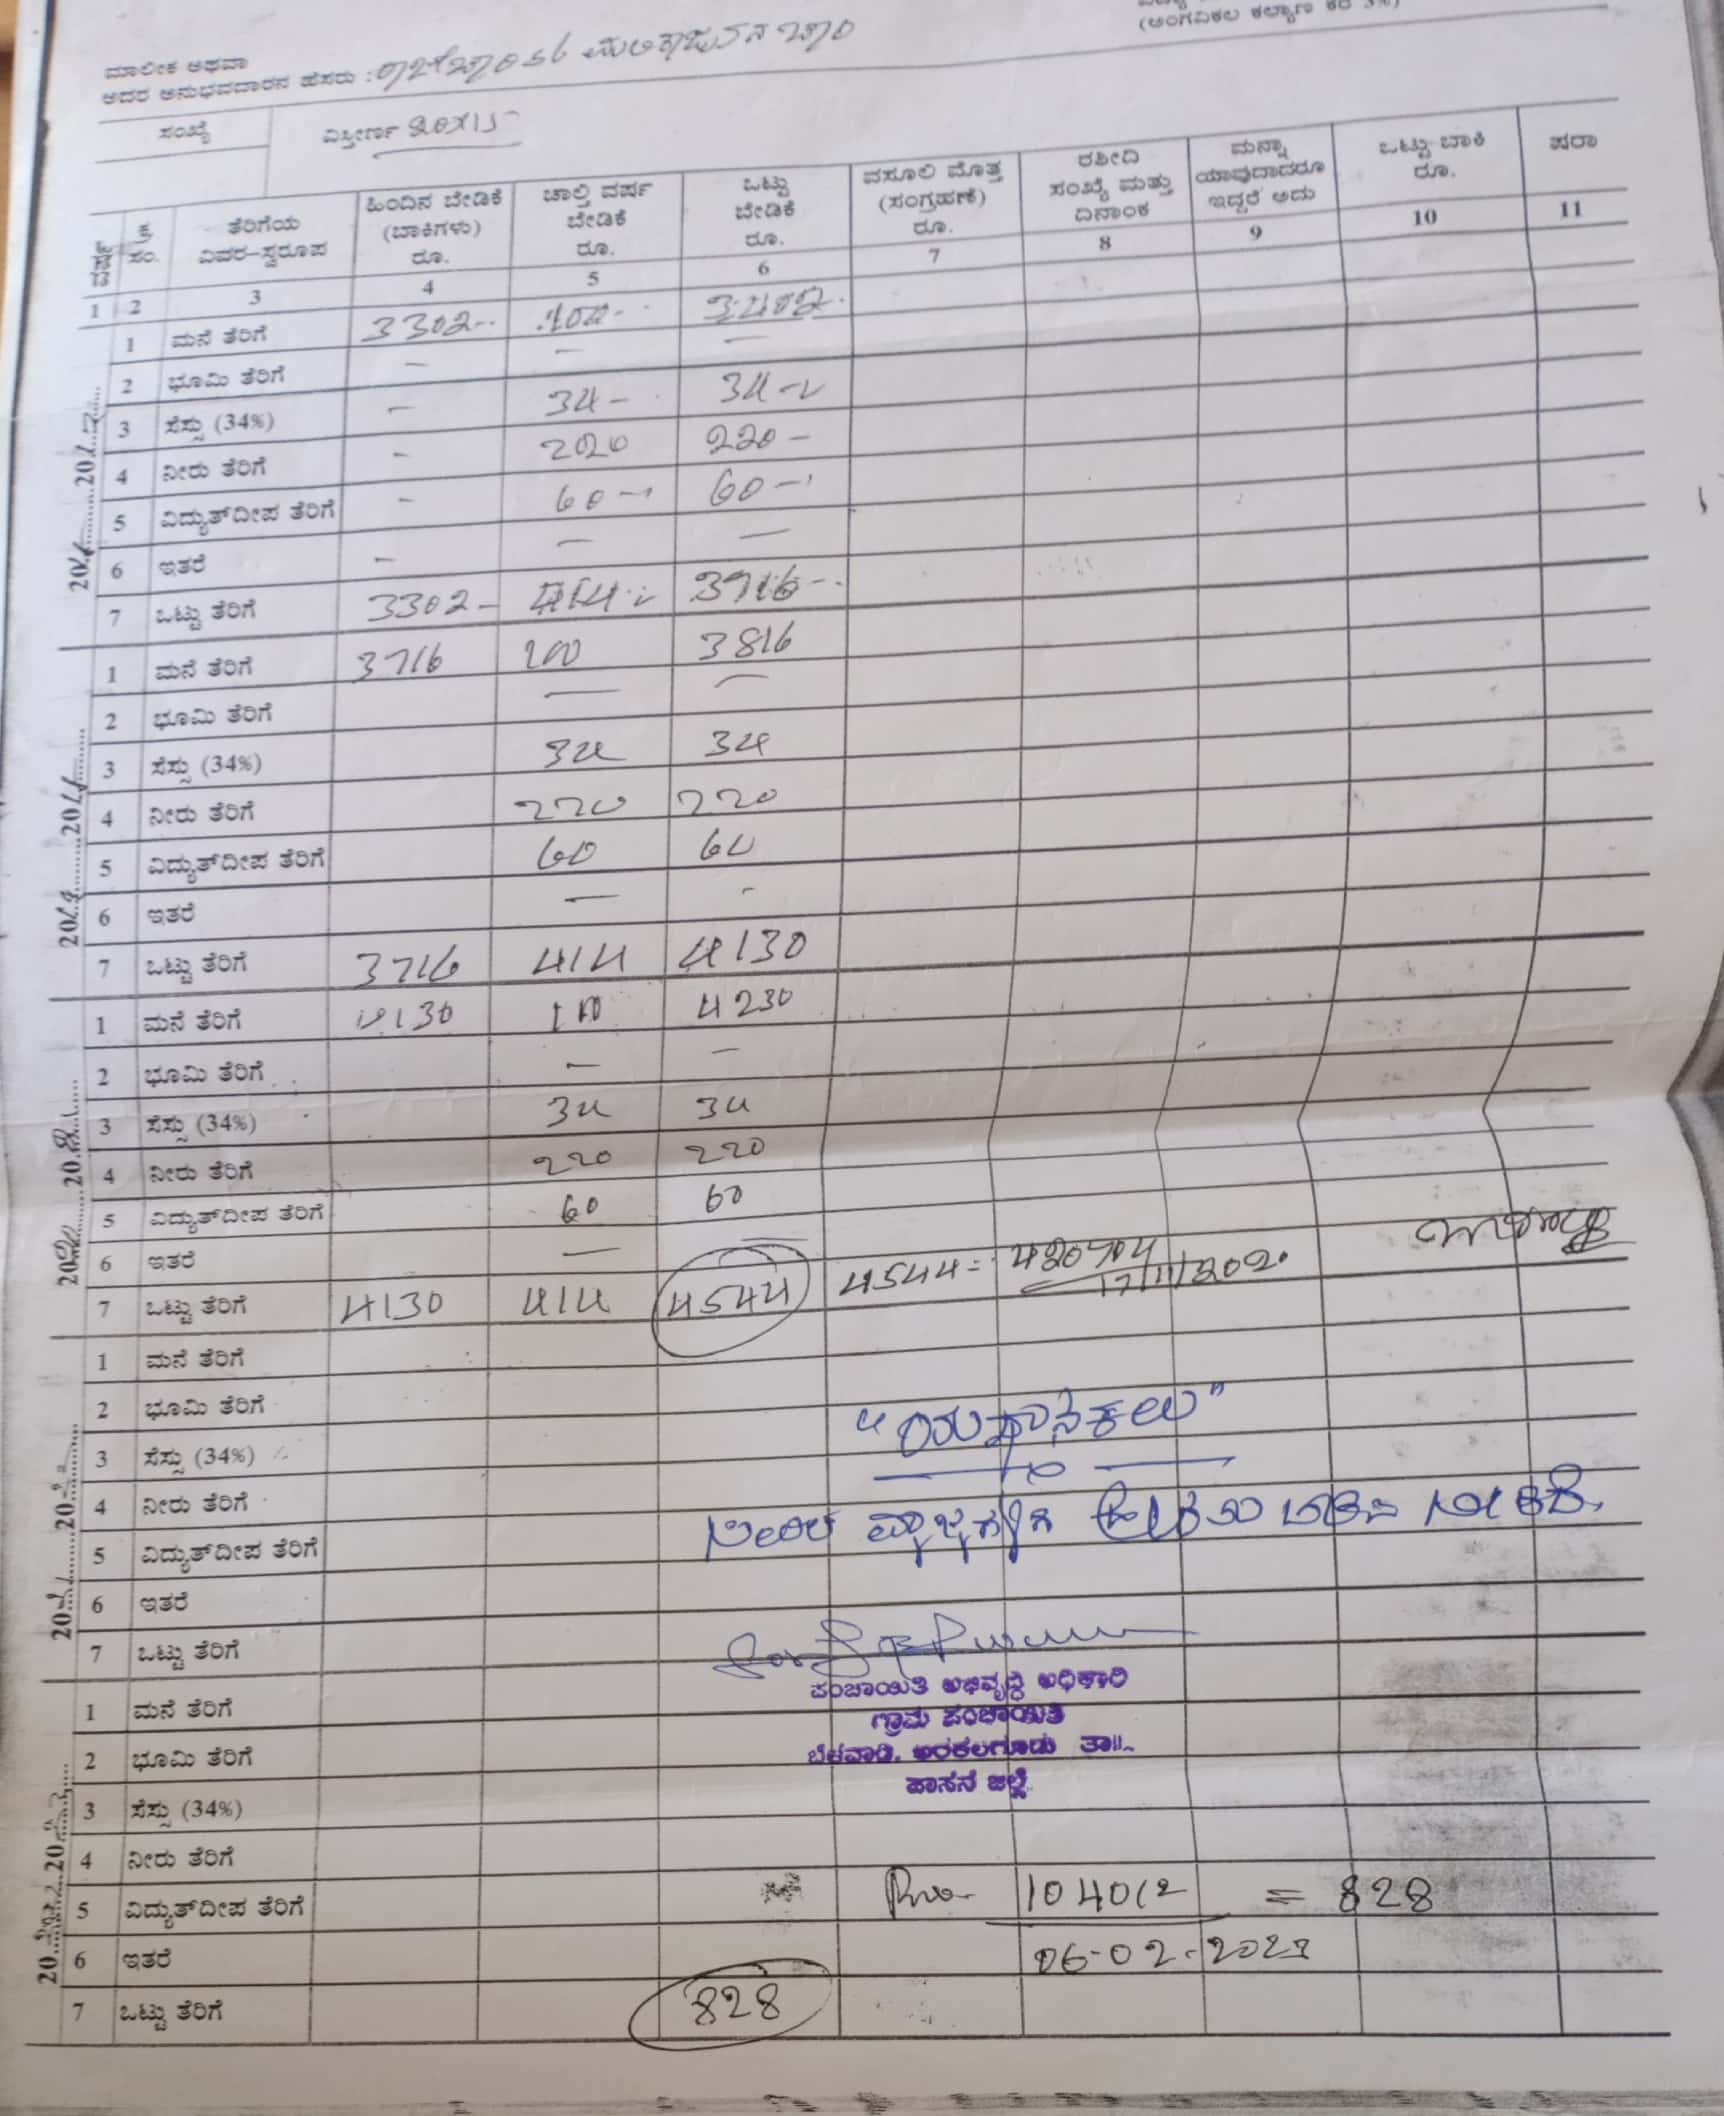 (ಅಂಗವಿಕಲ ಕಲ್ಯಾಣ ಕರ 3%)
ಮಾಲೀಕ ಅಥವಾ
ಅದರ ಅನುಭವದಾರನ ಹೆಸರು :
ಸಂಖ್ಯೆ ವಿಸ್ತೀರ್ಣ
ವರ್ಷ ಕ್ರ. ಸಂ. ತೆರಿಗೆಯ ವಿವರ-ಸ್ವರೂಪ ಹಿಂದಿನ ಬೇಡಿಕೆ (ಬಾಕಿಗಳು) ರೂ. ಚಾಲ್ತಿ ವರ್ಷ ಬೇಡಿಕೆ ರೂ. ಒಟ್ಟು ಬೇಡಿಕೆ ರೂ. ವಸೂಲಿ ಮೊತ್ತ (ಸಂಗ್ರಹಣೆ) ರೂ. ರಶೀದಿ ಸಂಖ್ಯೆ ಮತ್ತು ದಿನಾಂಕ ಮನ್ನಾ ಯಾವುದಾದರೂ ಇದ್ದರೆ ಅದು ಒಟ್ಟು ಬಾಕಿ ರೂ. ಷರಾ
1 2 3 4 5 6 7 8 9 10 11
1 ಮನೆ ತೆರಿಗೆ 3302 100 3402
2 ಭೂಮಿ ತೆರಿಗೆ - - -
3 ಸೆಸ್ಸು (34%) - 34 34
4 ನೀರು ತೆರಿಗೆ - 220 220
5 ವಿದ್ಯುತ್‌ದೀಪ ತೆರಿಗೆ - 60 60
6 ಇತರೆ - - -
7 ಒಟ್ಟು ತೆರಿಗೆ 3302 414 3716
1 ಮನೆ ತೆರಿಗೆ 3716 100 3816
2 ಭೂಮಿ ತೆರಿಗೆ - -
3 ಸೆಸ್ಸು (34%) 34 34
4 ನೀರು ತೆರಿಗೆ 220 220
5 ವಿದ್ಯುತ್‌ದೀಪ ತೆರಿಗೆ 60 60
6 ಇತರೆ - -
7 ಒಟ್ಟು ತೆರಿಗೆ 3716 414 4130
1 ಮನೆ ತೆರಿಗೆ 4130 100 4230
2 ಭೂಮಿ ತೆರಿಗೆ - -
3 ಸೆಸ್ಸು (34%) 34 34
4 ನೀರು ತೆರಿಗೆ 220 220
5 ವಿದ್ಯುತ್‌ದೀಪ ತೆರಿಗೆ 60 60
6 ಇತರೆ -
7 ಒಟ್ಟು ತೆರಿಗೆ 4130 414 4544 4544= 17/11/2020
1 ಮನೆ ತೆರಿಗೆ
2 ಭೂಮಿ ತೆರಿಗೆ
3 ಸೆಸ್ಸು (34%)
4 ನೀರು ತೆರಿಗೆ
5 ವಿದ್ಯುತ್‌ದೀಪ ತೆರಿಗೆ
6 ಇತರೆ
7 ಒಟ್ಟು ತೆರಿಗೆ
ಪಂಚಾಯಿತಿ ಅಭಿವೃದ್ಧಿ ಅಧಿಕಾರಿ
ಗ್ರಾಮ ಪಂಚಾಯಿತಿ
ಬೆಳವಾಡಿ, ಅರಕಲಗೂಡು ತಾ||.
ಹಾಸನ ಜಿಲ್ಲೆ
1 ಮನೆ ತೆರಿಗೆ
2 ಭೂಮಿ ತೆರಿಗೆ
3 ಸೆಸ್ಸು (34%)
4 ನೀರು ತೆರಿಗೆ
5 ವಿದ್ಯುತ್‌ದೀಪ ತೆರಿಗೆ = 828
6 ಇತರೆ
7 ಒಟ್ಟು ತೆರಿಗೆ 828